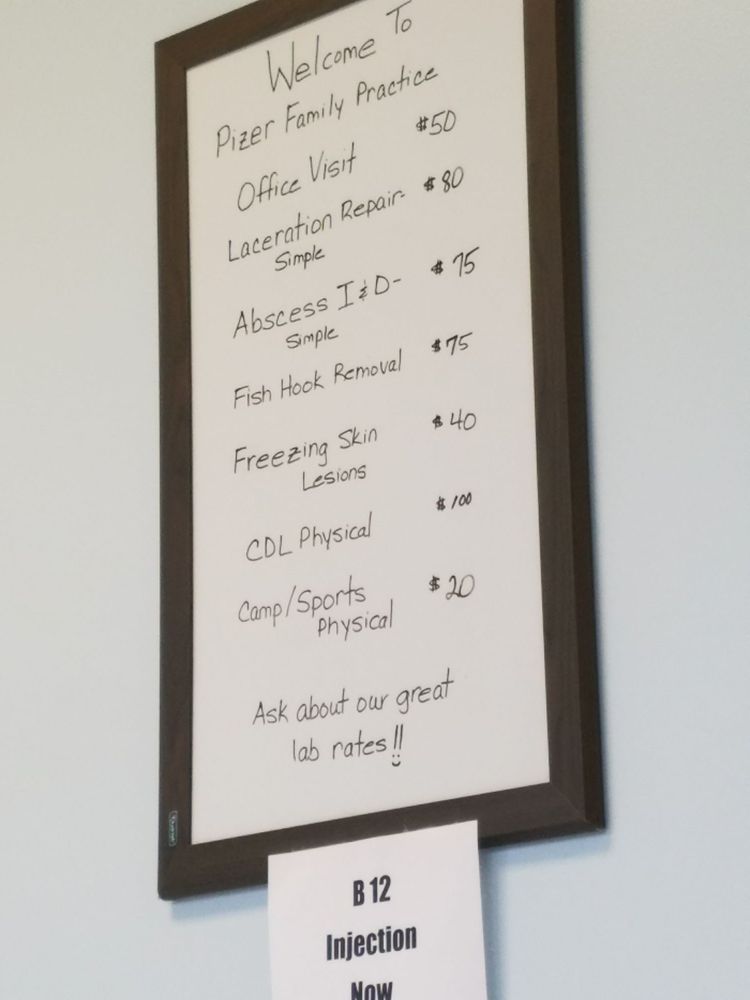 Welcome To
Pizer Family Practice
Office Visit $50
Laceration Repair- $80
Simple
Abscess I & D- $75
Simple
Fish Hook Removal $75
Freezing Skin $40
Lesions
CDL Physical $100
Camp/Sports $20
Physical
Ask about our great
lab rates!!
B 12
Injection
Now